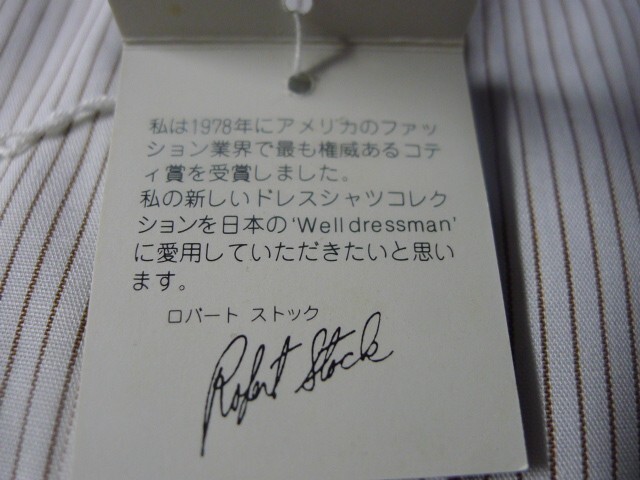 私は1978年にアメリカのファッ
ション業界で最も権威あるコテ
ィ賞を受賞しました。
私の新しいドレスシャツコレク
ションを日本の‘Well dressman’
に愛用していただきたいと思い
ます。
ロバート ストック
Robert Stock